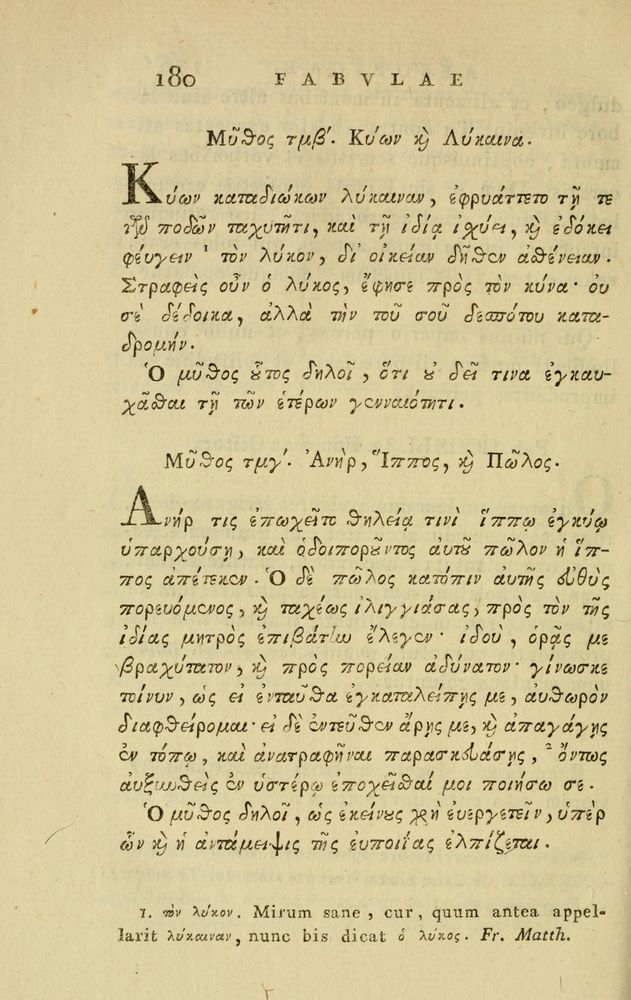 180 FABVLAE
Μῦθος τμβ'. Κύων κỳ Λύκαινα.
Κύων καταδιώκων λύκαιναν, ἐφρυάττετο τῇ τε
τῶν ποδῶν ταχυτῆτι, καὶ τῇ ἰδίᾳ ἰχύει, κỳ ἐδόκει
φεύγειν ¹ τὸν λύκον, δι' οἰκείαν δῆθεν ἀσθένειαν.
Στραφεὶς οὖν ὁ λύκος, ἔφησε πρὸς τὸν κύνα· ου
σὲ δέδοικα, ἀλλὰ τὴν τοῦ σοῦ δεσπότου κατα-
δρομήν.
Ὁ μῦθος ȣ̃τος δηλοῖ, ὅτι ȣ δεῖ τινα ἐγκαυ-
χᾶσθαι τῇ τῶν ἑτέρων γενναιότητι.
Μῦθος τμγ'. Ἀνὴρ, Ἵππος, κỳ Πῶλος.
Ἀνήρ τις ἐπωχεῖτο θηλείᾳ τινὶ ἵππῳ ἐγκύῳ
ὑπαρχούσῃ, καὶ ὁδοιπορȣ̃ντος αὐτȣ̃ πῶλον ἡ ἵπ-
πος ἀπέτεκεν. Ὁ δὲ πῶλος κατόπιν αὐτῆς εὐθὺς
πορευόμενος, κỳ ταχέως ἰλιγγιάσας, πρὸς τὸν τῆς
ἰδίας μητρὸς ἐπιβάτην ἔλεγεν· ἰδού, ὁρᾷς με
βραχύτατον, κỳ πρὸς πορείαν ἀδύνατον· γίνωσκε
τοίνυν, ὡς εἰ ἐνταῦθα ἐγκαταλείπῃς με, αὐθωρὸν
διαφθείρομαι· εἰ δὲ ἐντεῦθεν ἄρῃς με, κỳ ἀπαγάγῃς
ἐν τόπῳ, καὶ ἀνατραφῆναι παρασκευάσῃς, ² ὄντως
αὐξηθεὶς ἐν ὑστέρῳ ἐποχεῖσθαί μοι ποιήσω σε.
Ὁ μῦθος δηλοῖ, ὡς ἐκείνȣς χρὴ ἐυεργετεῖν, ὑπὲρ
ὧν κỳ ἡ ἀντάμειψις τῆς ἐυποιΐας ἐλπίζεται.
1. τὸν λύκον. Mirum sane, cur, quum antea appel-
larit λύκαιναν, nunc bis dicat ὁ λύκος. Fr. Matth.